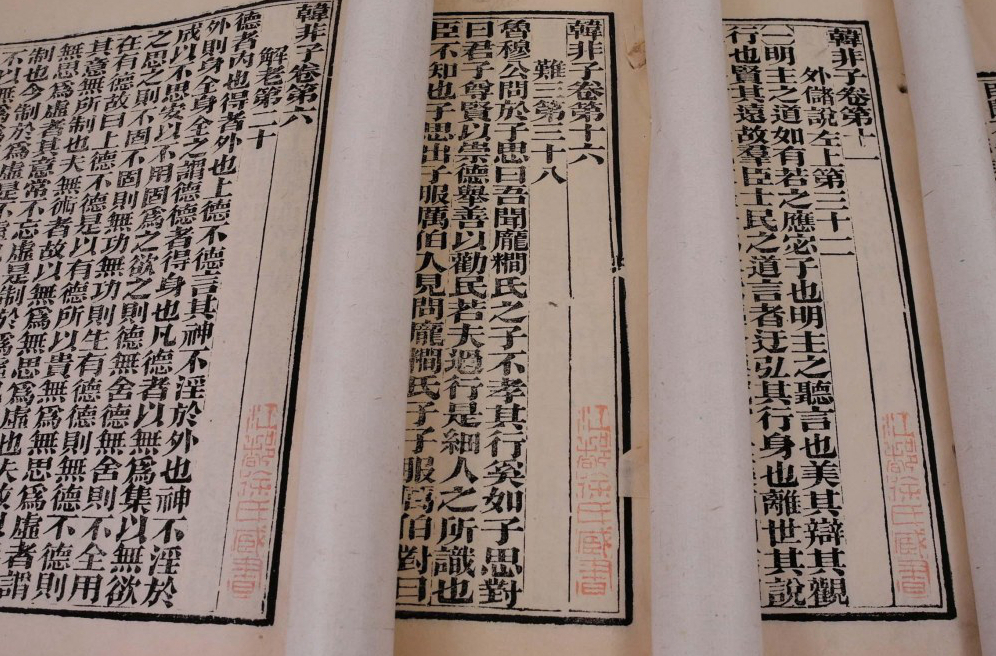 韓非子卷第十一
外儲說左上第三十二
㈠明主之道如有若之應宓子也明主之聽言也美其辯其觀
行也賢其遠故羣臣士民之道言者迂弘其行身也離世其說
江都徐氏藏書
韓非子卷第十六
難三第三十八
魯穆公問於子思曰吾聞龐氏之子不孝其行奚如子思對
曰君子尊賢以崇德舉善以勸民若夫過行是細人之所識也
臣不知也子思出子服厲伯入見問龐氏子子服厲伯對曰
江都徐氏藏書
韓非子卷第六
解老第二十
德者內也得者外也上德不德言其神不淫於外也神不淫於
外則身全身全之謂德德者得身也凡德者以無爲集以無欲
成以不思安以不用固爲之欲之則德無舍德無舍則不全用
之思之則不固不固則無功無功則生有德德則無德不德則
在有德故曰上德不德是以有德所以貴無爲無思爲虛者謂
其意無所制也夫無術者故以無爲無思爲虛也夫故以
無思爲虛者其意常不忘虛是制於爲虛
制也今制於爲虛是不虛
不以無爲爲
江都徐氏藏書